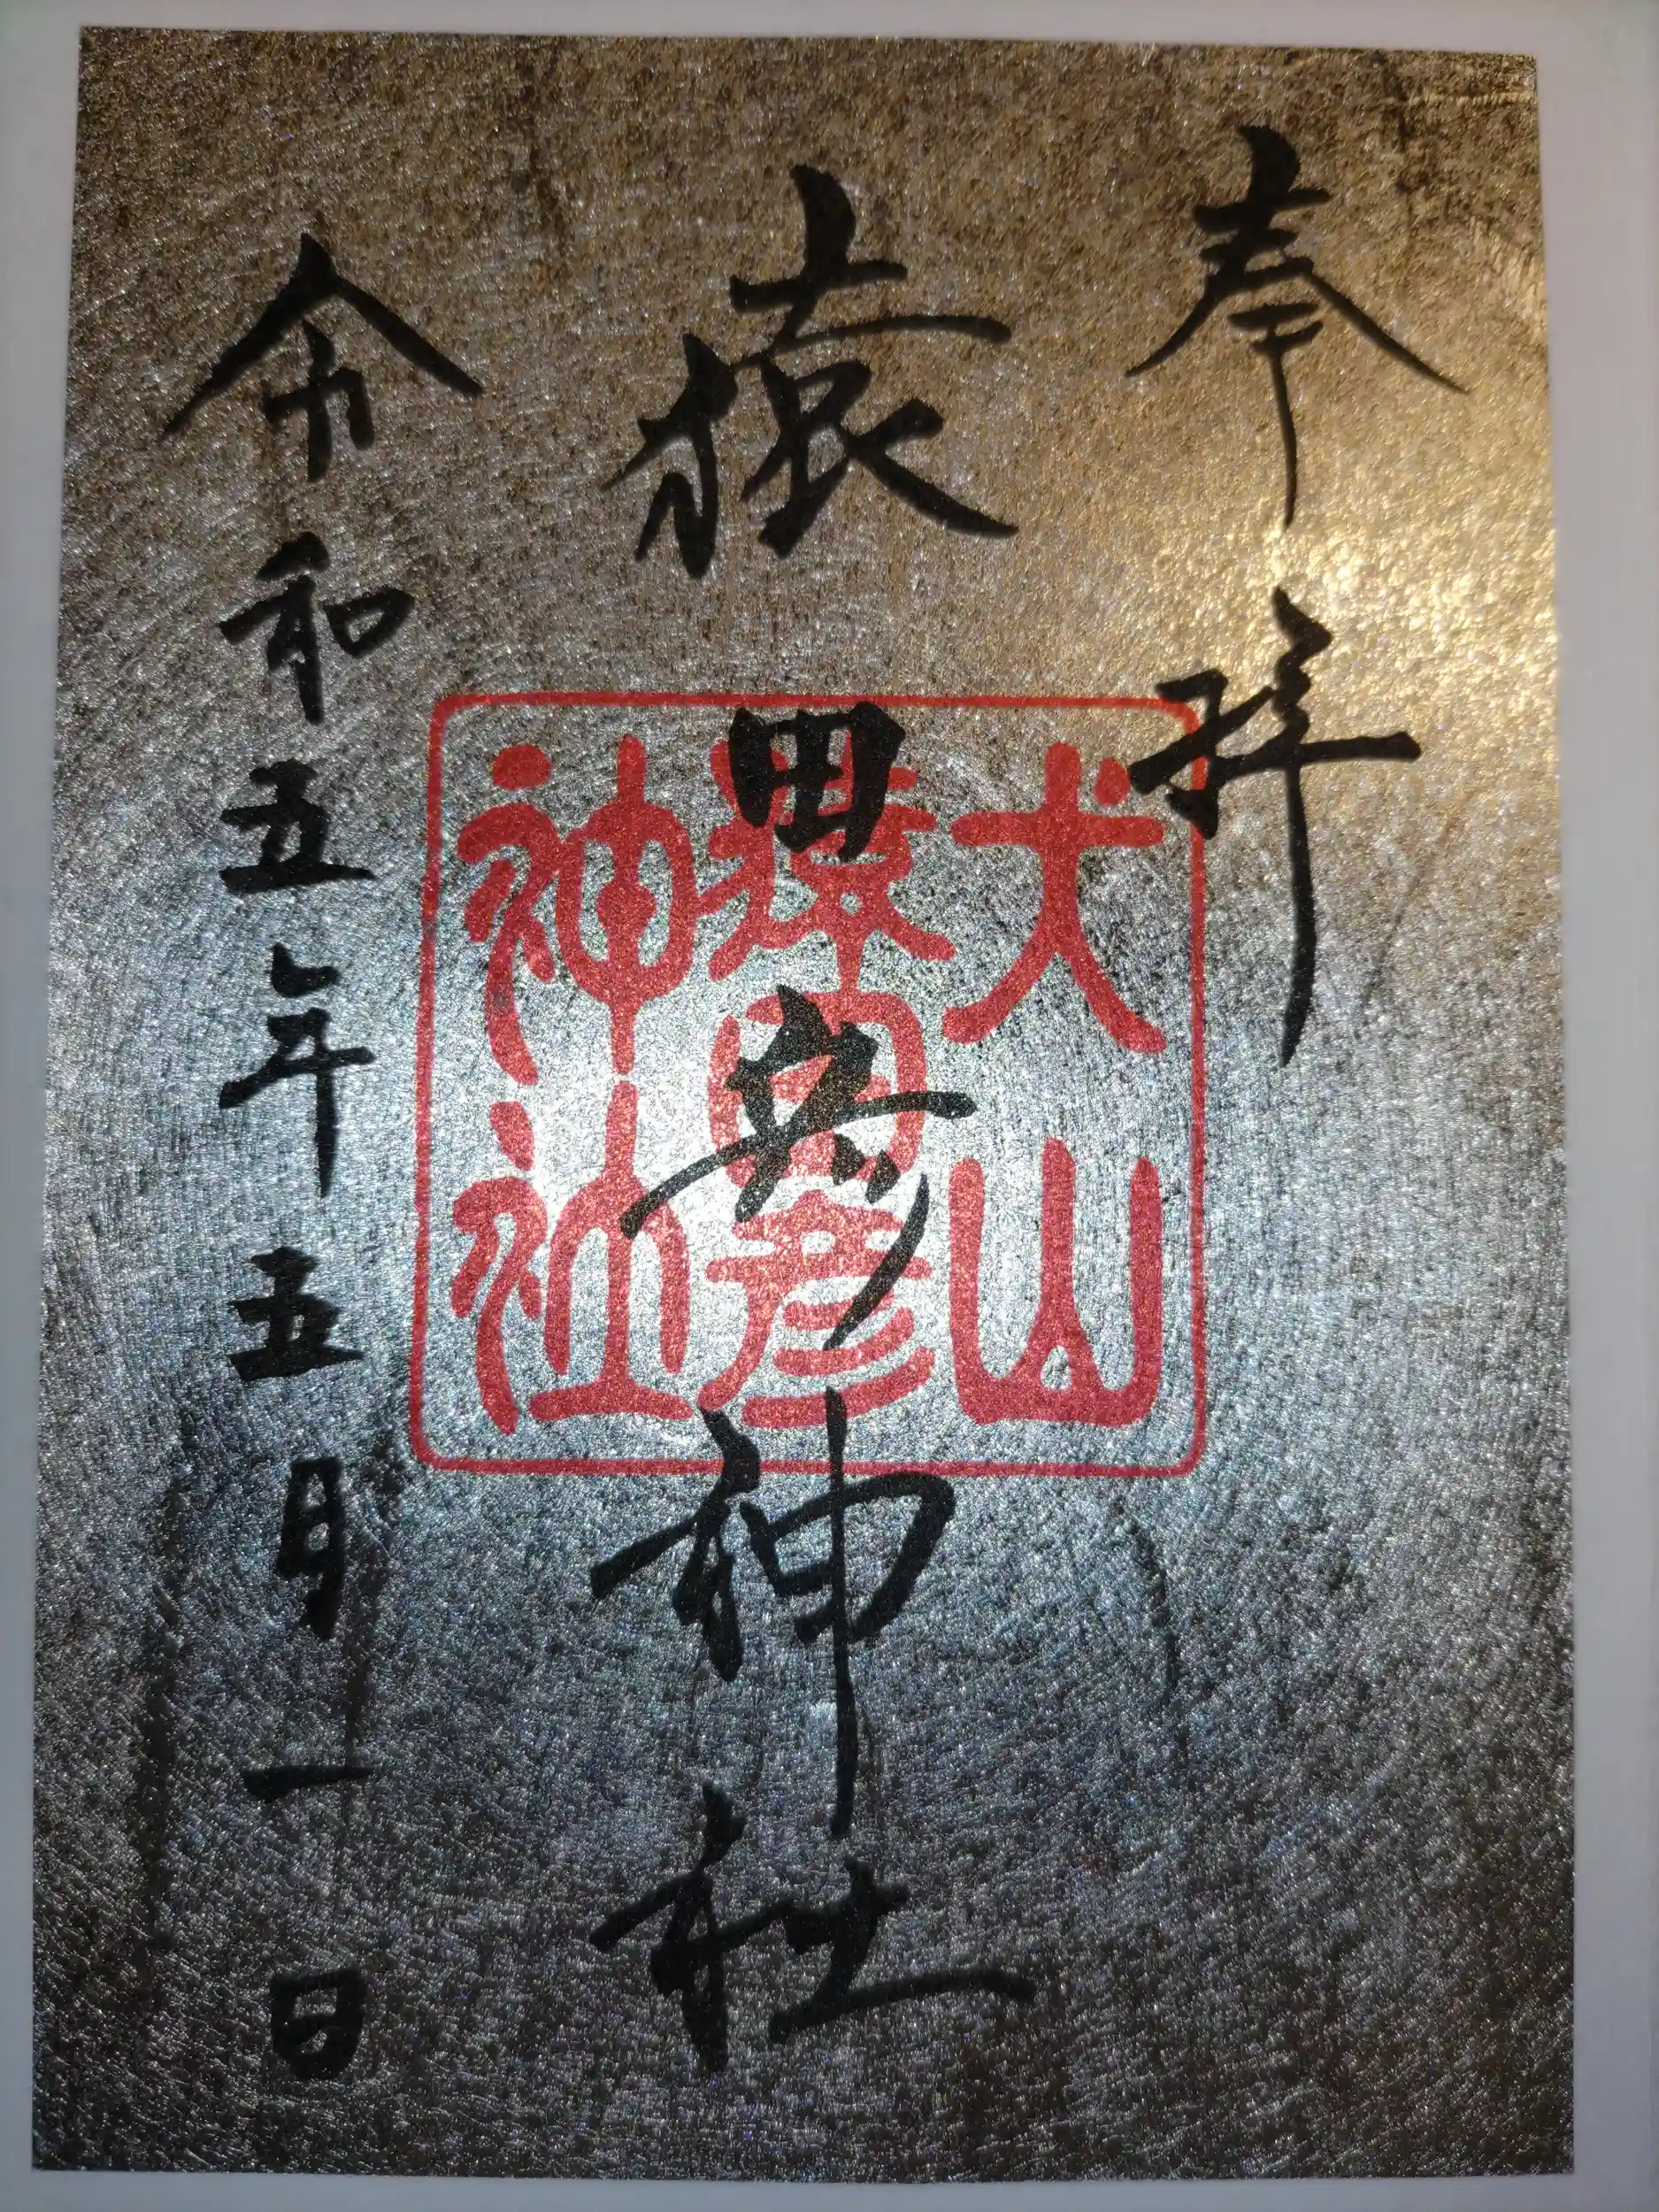 奉拝
猿田彦神社
犬山
猿田彦
神社
令和五年五月一日